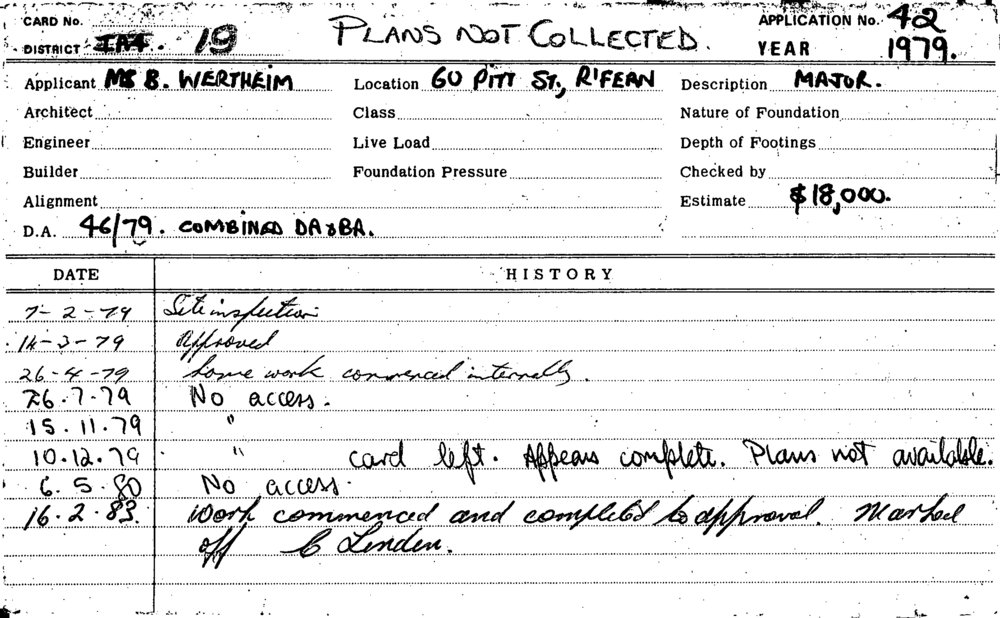 CARD No.
DISTRICT 19 PLANS NOT COLLECTED. APPLICATION No. 42
YEAR 1979.
Applicant MS B. WERTHEIM Location 60 PITT ST., R'FERN Description MAJOR.
Architect Class Nature of Foundation
Engineer Live Load Depth of Footings
Builder Foundation Pressure Checked by
Alignment Estimate $18,000.
D.A. 46/79. COMBINED DA & BA.
DATE HISTORY
7-2-79 Site inspection
14-3-79 Approved
26-4-79 Some work commenced internally.
26.7.79 No access.
15.11.79 "
10.12.79 " card left. Appears complete. Plans not available.
6.5.80 No access.
16.2.83. Work commenced and completed to approval. Marked
off C Linden.